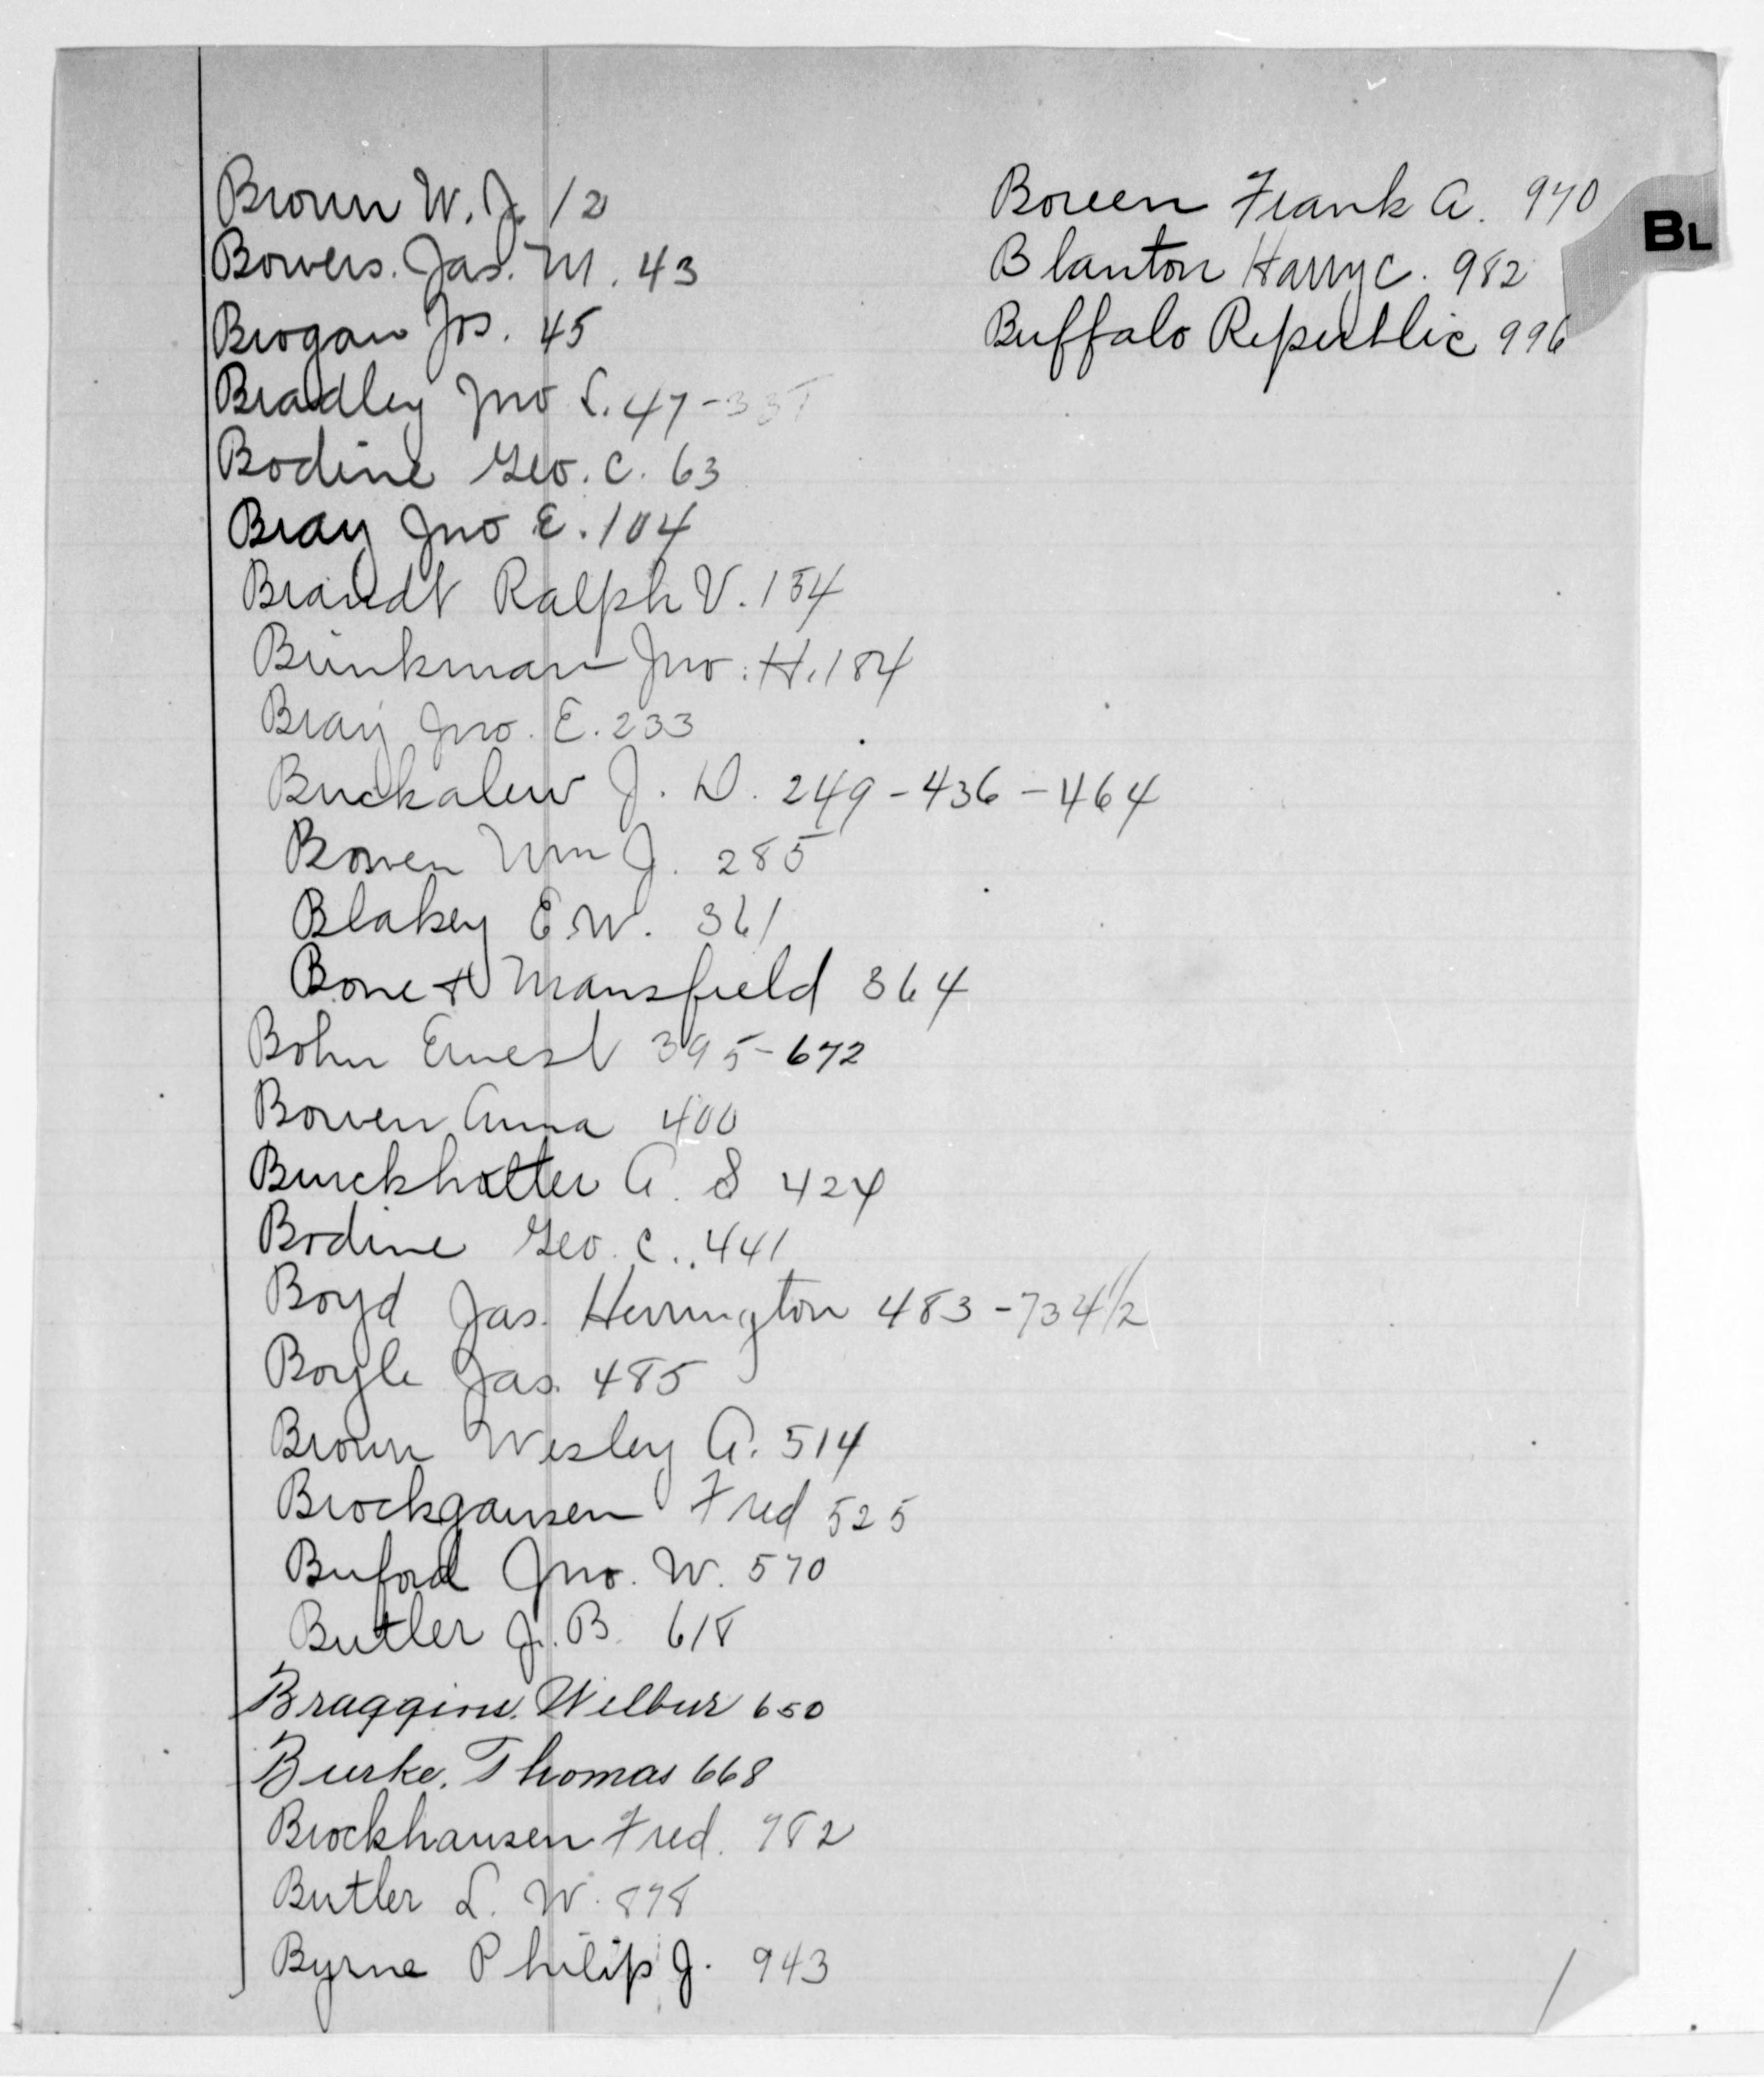 Brown W. J. 12
Bowers. Jas. M. 43
Brogan Jos. 45
Bradley Jno S. 47-337
Bodine Geo. C. 63
Bray Jno E. 104
Brandt Ralph V. 154
Brinkman Jno. H. 184
Bray Jno. E. 233
Buckalew J. D. 249-436-464
Bowen Wm J. 285
Blakey E.W. 361
Bone & Mansfield 364
Bohn Ernest 395-672
Bowen Anna 400
Burckhalter A. S 424
Bodine Geo. C. 441
Boyd Jas. Herrington 483-734½
Boyle Jas. 485
Brown Wesley A. 514
Brockgausen Fred 525
Buford Jno. W. 570
Butler J. B. 618
Braggins. Wilbur 650
Burke. Thomas 668
Brockhausen Fred. 782
Butler L. W. 878
Byrne Philip J. 943
Bowen Frank A. 970
Blanton Harry C. 982
Buffalo Republic 996
BL